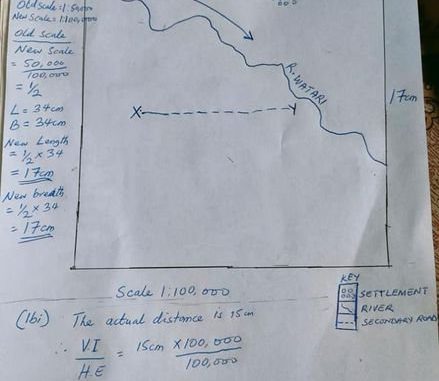 Old scale = 1:50,000
New Scale = 1:100,000
Old scale
New Scale
= 50,000
100,000
= 1/2
L = 34cm
B = 34cm
New Length
= 1/2 x 34
= 17cm
New breadth
= 1/2 x 34
= 17cm
R. WATARI
X
Y
17cm
Scale 1:100,000
KEY
SETTLEMENT
RIVER
SECONDARY ROAD
(1bi) The actual distance is 15cm
∴ V.I = 15cm x 100,000
H.E 100,000